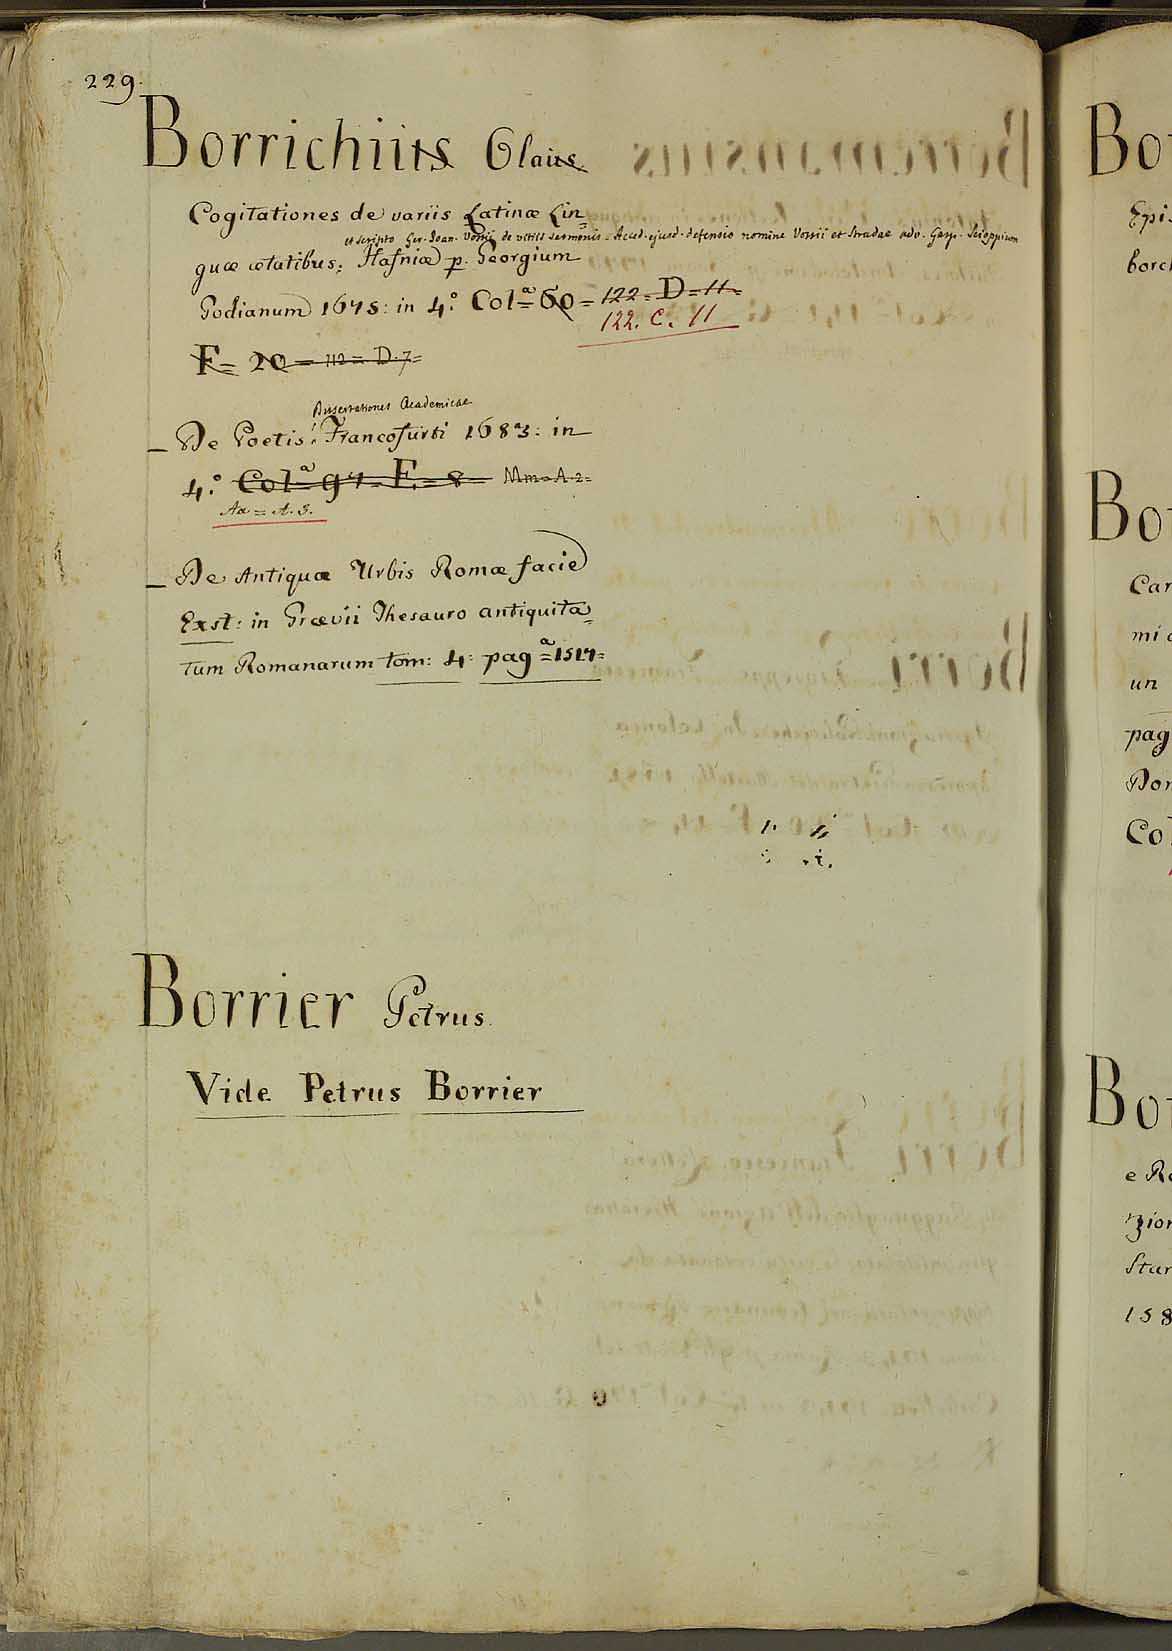 229.
Borrichius Olaus.
Cogitationes de variis Latinæ Lin=
et scripto Ger. Ioan. Vossii de vitiis sermonis. Acced. ejusd. defensio nomine Vossii et Stradae adv. Gasp. Scioppium
guæ ætatibus; Hafniæ p. Georgium
Godianum 1675: in 4.º Col.ª 60 = 122 = D = 11 =
122. C. 11
F = 20 = 112 = D. 7 =
Dissertationes Academicae
_ De Poetis: Francofurti 1683: in
4.º Col.ª 97 = F. = 8 = Mm = A. 2 =
Aa = A. 3.
_ De Antiquæ Urbis Romæ facie
Exst: in Grævii Thesauro antiquita=
tum Romanarum tom: 4: pag.ª = 1517 =
Borrier Petrus.
Vide Petrus Borrier
Bor
Epis
borch
Bor
Car
mi
un
pag
Don
Col
Bor
e Ro
zion
Stam
158